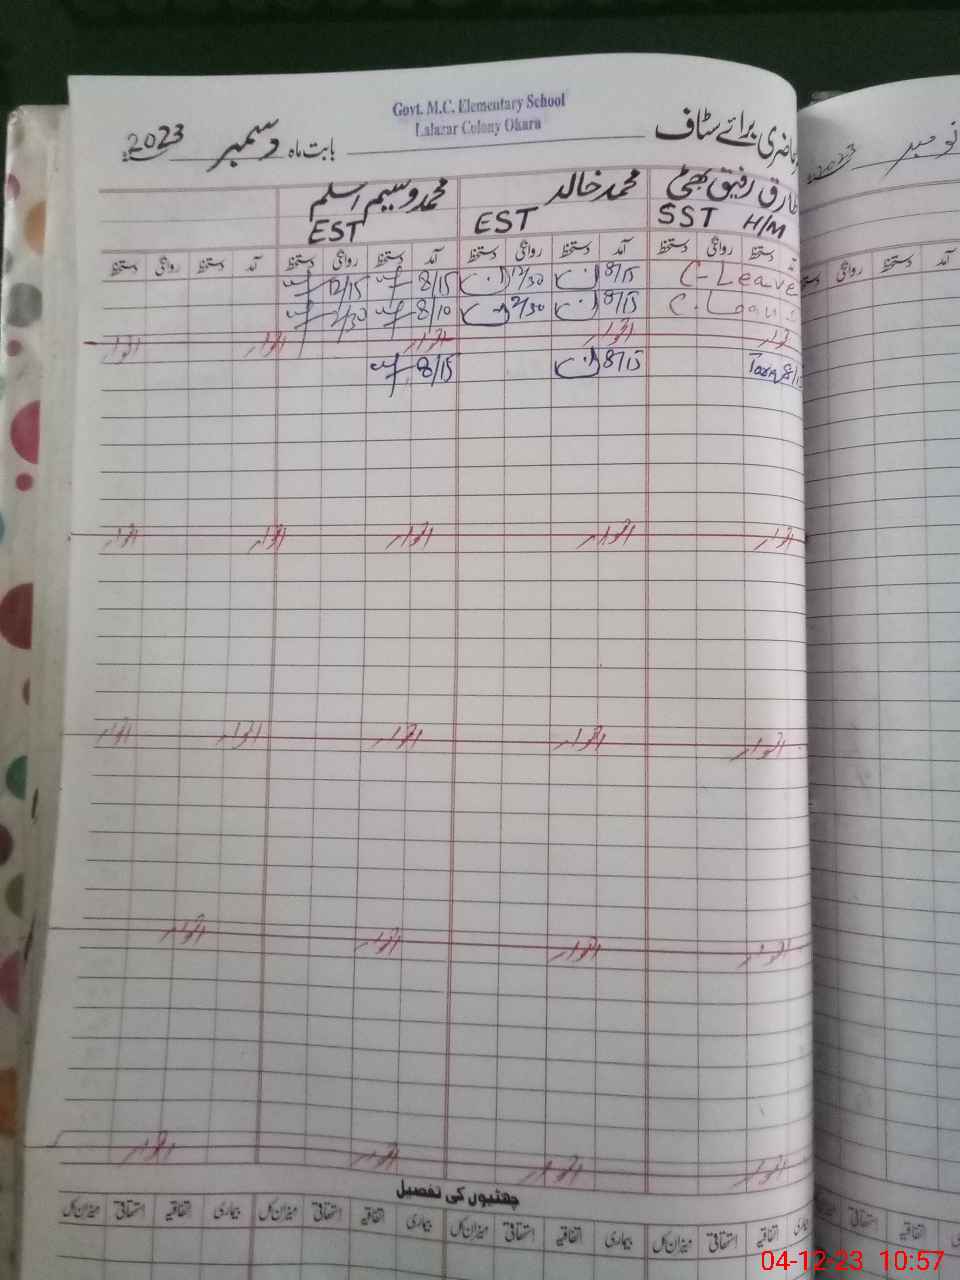 Govt. M.C. Elementary School
Lalazar Colony Okara
حاضری برائے سٹاف
بابت ماہ دسمبر 2023
طارق رفیق بھٹی محمد خالد محمد وسیم اسلم
SST H/M EST EST
دستخط روانگی دستخط آمد دستخط روانگی دستخط آمد دستخط روانگی دستخط آمد دستخط روانگی دستخط
C-Leave 8/15 12/30 8/15 12/15
C. Leave 8/15 2/30 8/10 2/30
اتوار اتوار اتوار اتوار اتوار
Tariq 8/15 8/15 8/15
اتوار اتوار اتوار اتوار اتوار
اتوار اتوار اتوار اتوار اتوار
اتوار اتوار اتوار اتوار
اتوار اتوار اتوار اتوار
چھٹیوں کی تفصیل
بیماری اتفاقیہ استحقاقی میزان کل بیماری اتفاقیہ استحقاقی میزان کل بیماری اتفاقیہ استحقاقی میزان کل بیماری اتفاقیہ استحقاقی میزان کل
نومبر 2023
آمد دستخط روانگی دستخط
04-12-23 10:57